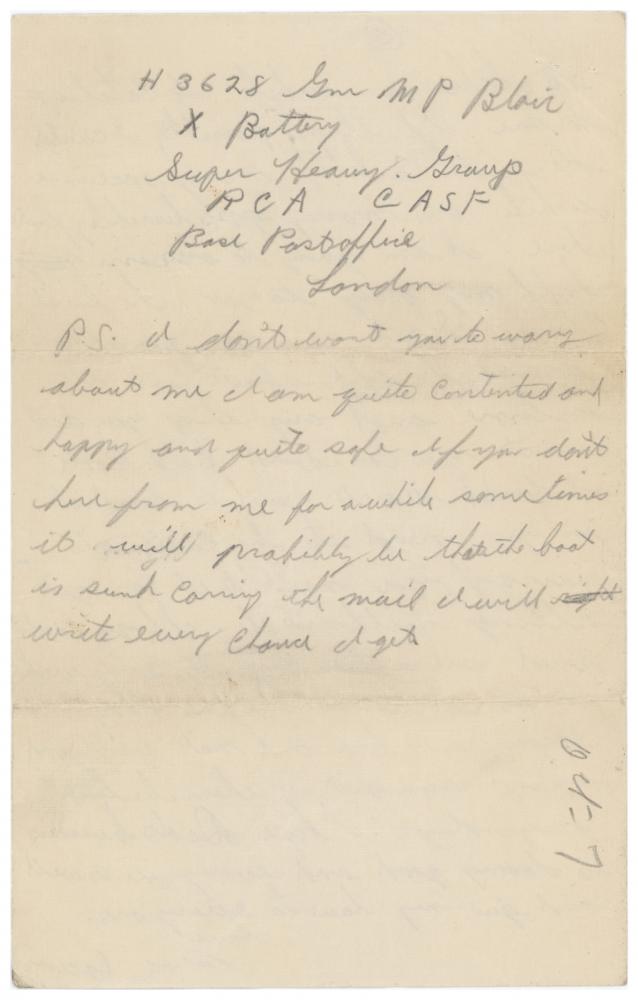 H 3628 Gnr M P Blair
X Battery
Super Heavy. Group
RCA CASF
Base Postoffice
London
P.S. I don't want you to worry
about me I am quite Contented and
happy and quite safe If you don't
here from me for awhile sometimes
it will probibly be that the boat
is sunk Carring the mail I will right
write every Chance I get
Oct-7